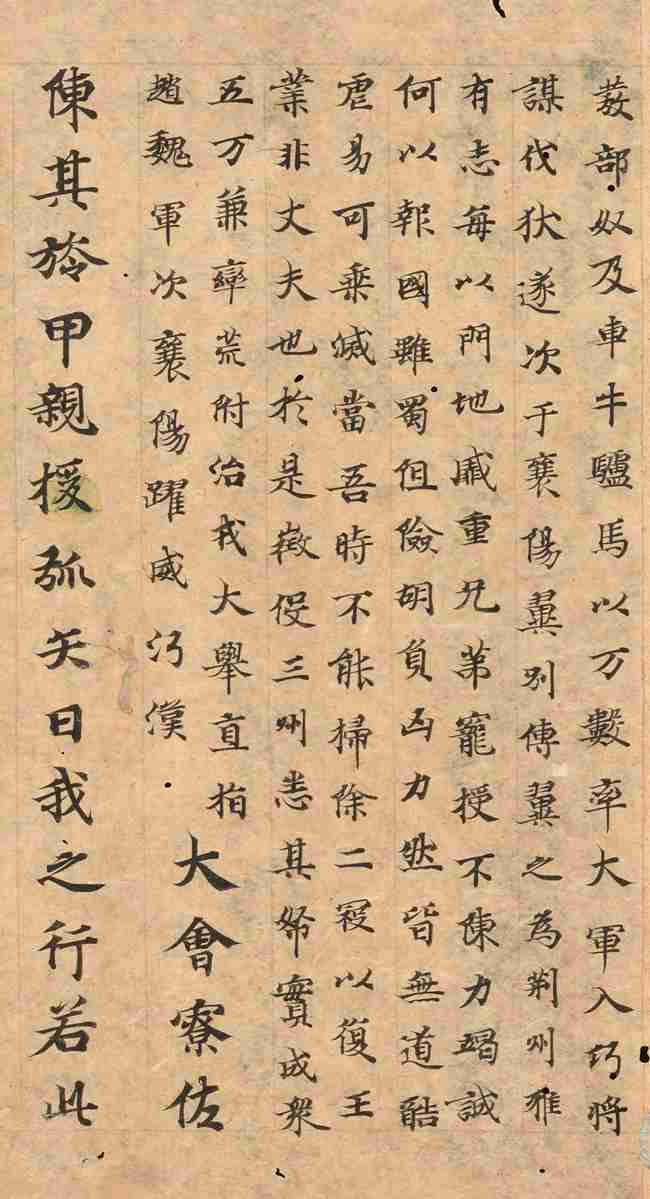 發部奴及車牛驢馬以万數率大軍入沔將
謀伐狄遂次于襄陽翼別傳翼之為荊州雅
有志每以門地戚重兄弟寵授不陳力竭誠
何以報國雖蜀但險胡負凶力然皆無道酷
虐易可乗滅當吾時不能掃除二寇以復王
業非丈夫也於是徵役三州悉其帑實成衆
五万兼率荒附治戎大舉直指
趙魏軍次襄陽躍威沔漢大會寮佐
陳其旍甲親援弧矢曰我之行若此